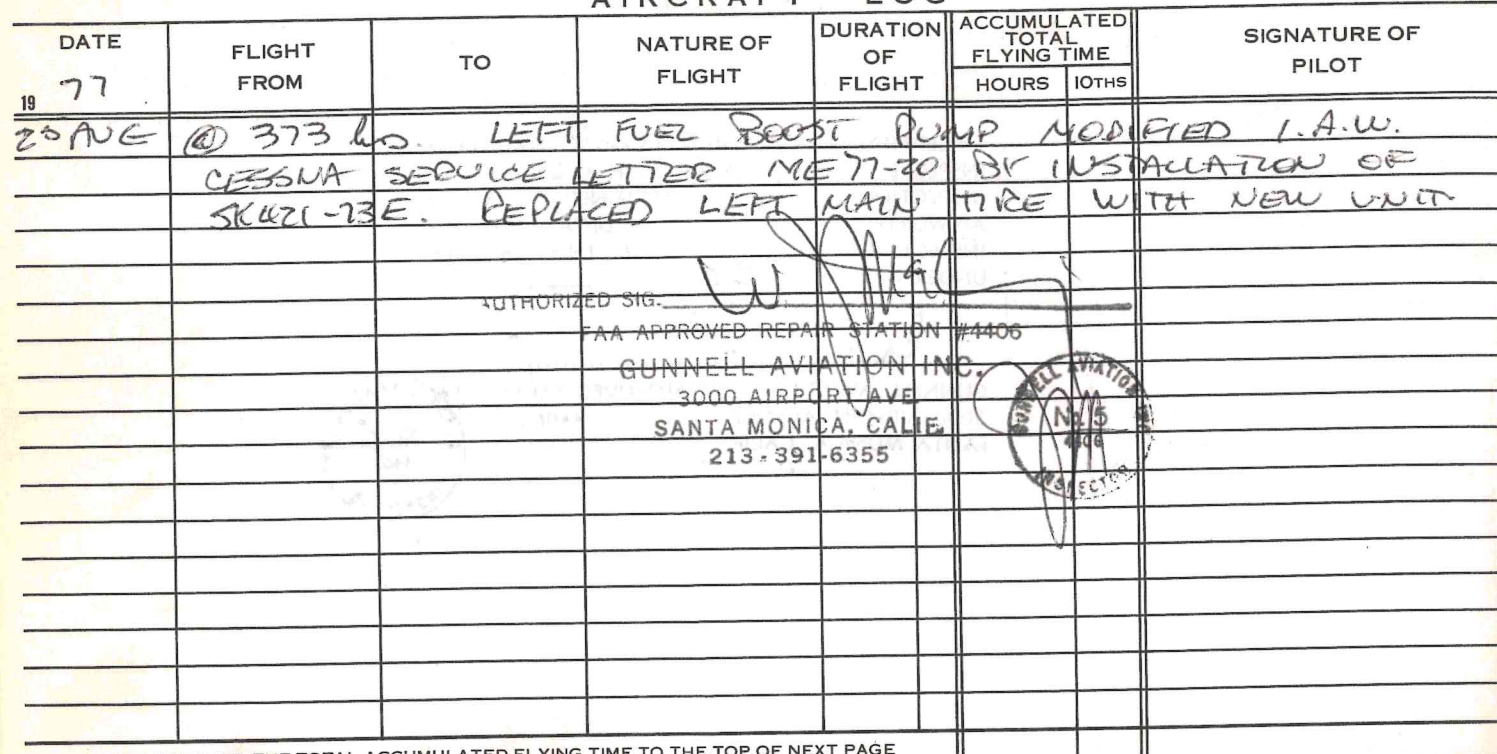 AIRCRAFT LOG
DATE
19 77
FLIGHT
FROM
TO
NATURE OF
FLIGHT
DURATION
OF
FLIGHT
ACCUMULATED
TOTAL
FLYING TIME
HOURS
10THS
SIGNATURE OF
PILOT
@ 373 hrs. LEFT FUEL BOOST PUMP MODIFIED I.A.W.
CESSNA SERVICE LETTER ME77-20 BY INSTALLATION OF
SK421-73E. REPLACED LEFT MAIN TIRE WITH NEW UNIT
AUTHORIZED SIG.
FAA APPROVED REPAIR STATION #4406
GUNNELL AVIATION INC.
3000 AIRPORT AVE
SANTA MONICA, CALIF.
213-391-6355
GUNNELL AVIATION INC
No. 5
4406
INSPECTOR
TOTAL ACCUMULATED FLYING TIME TO THE TOP OF NEXT PAGE